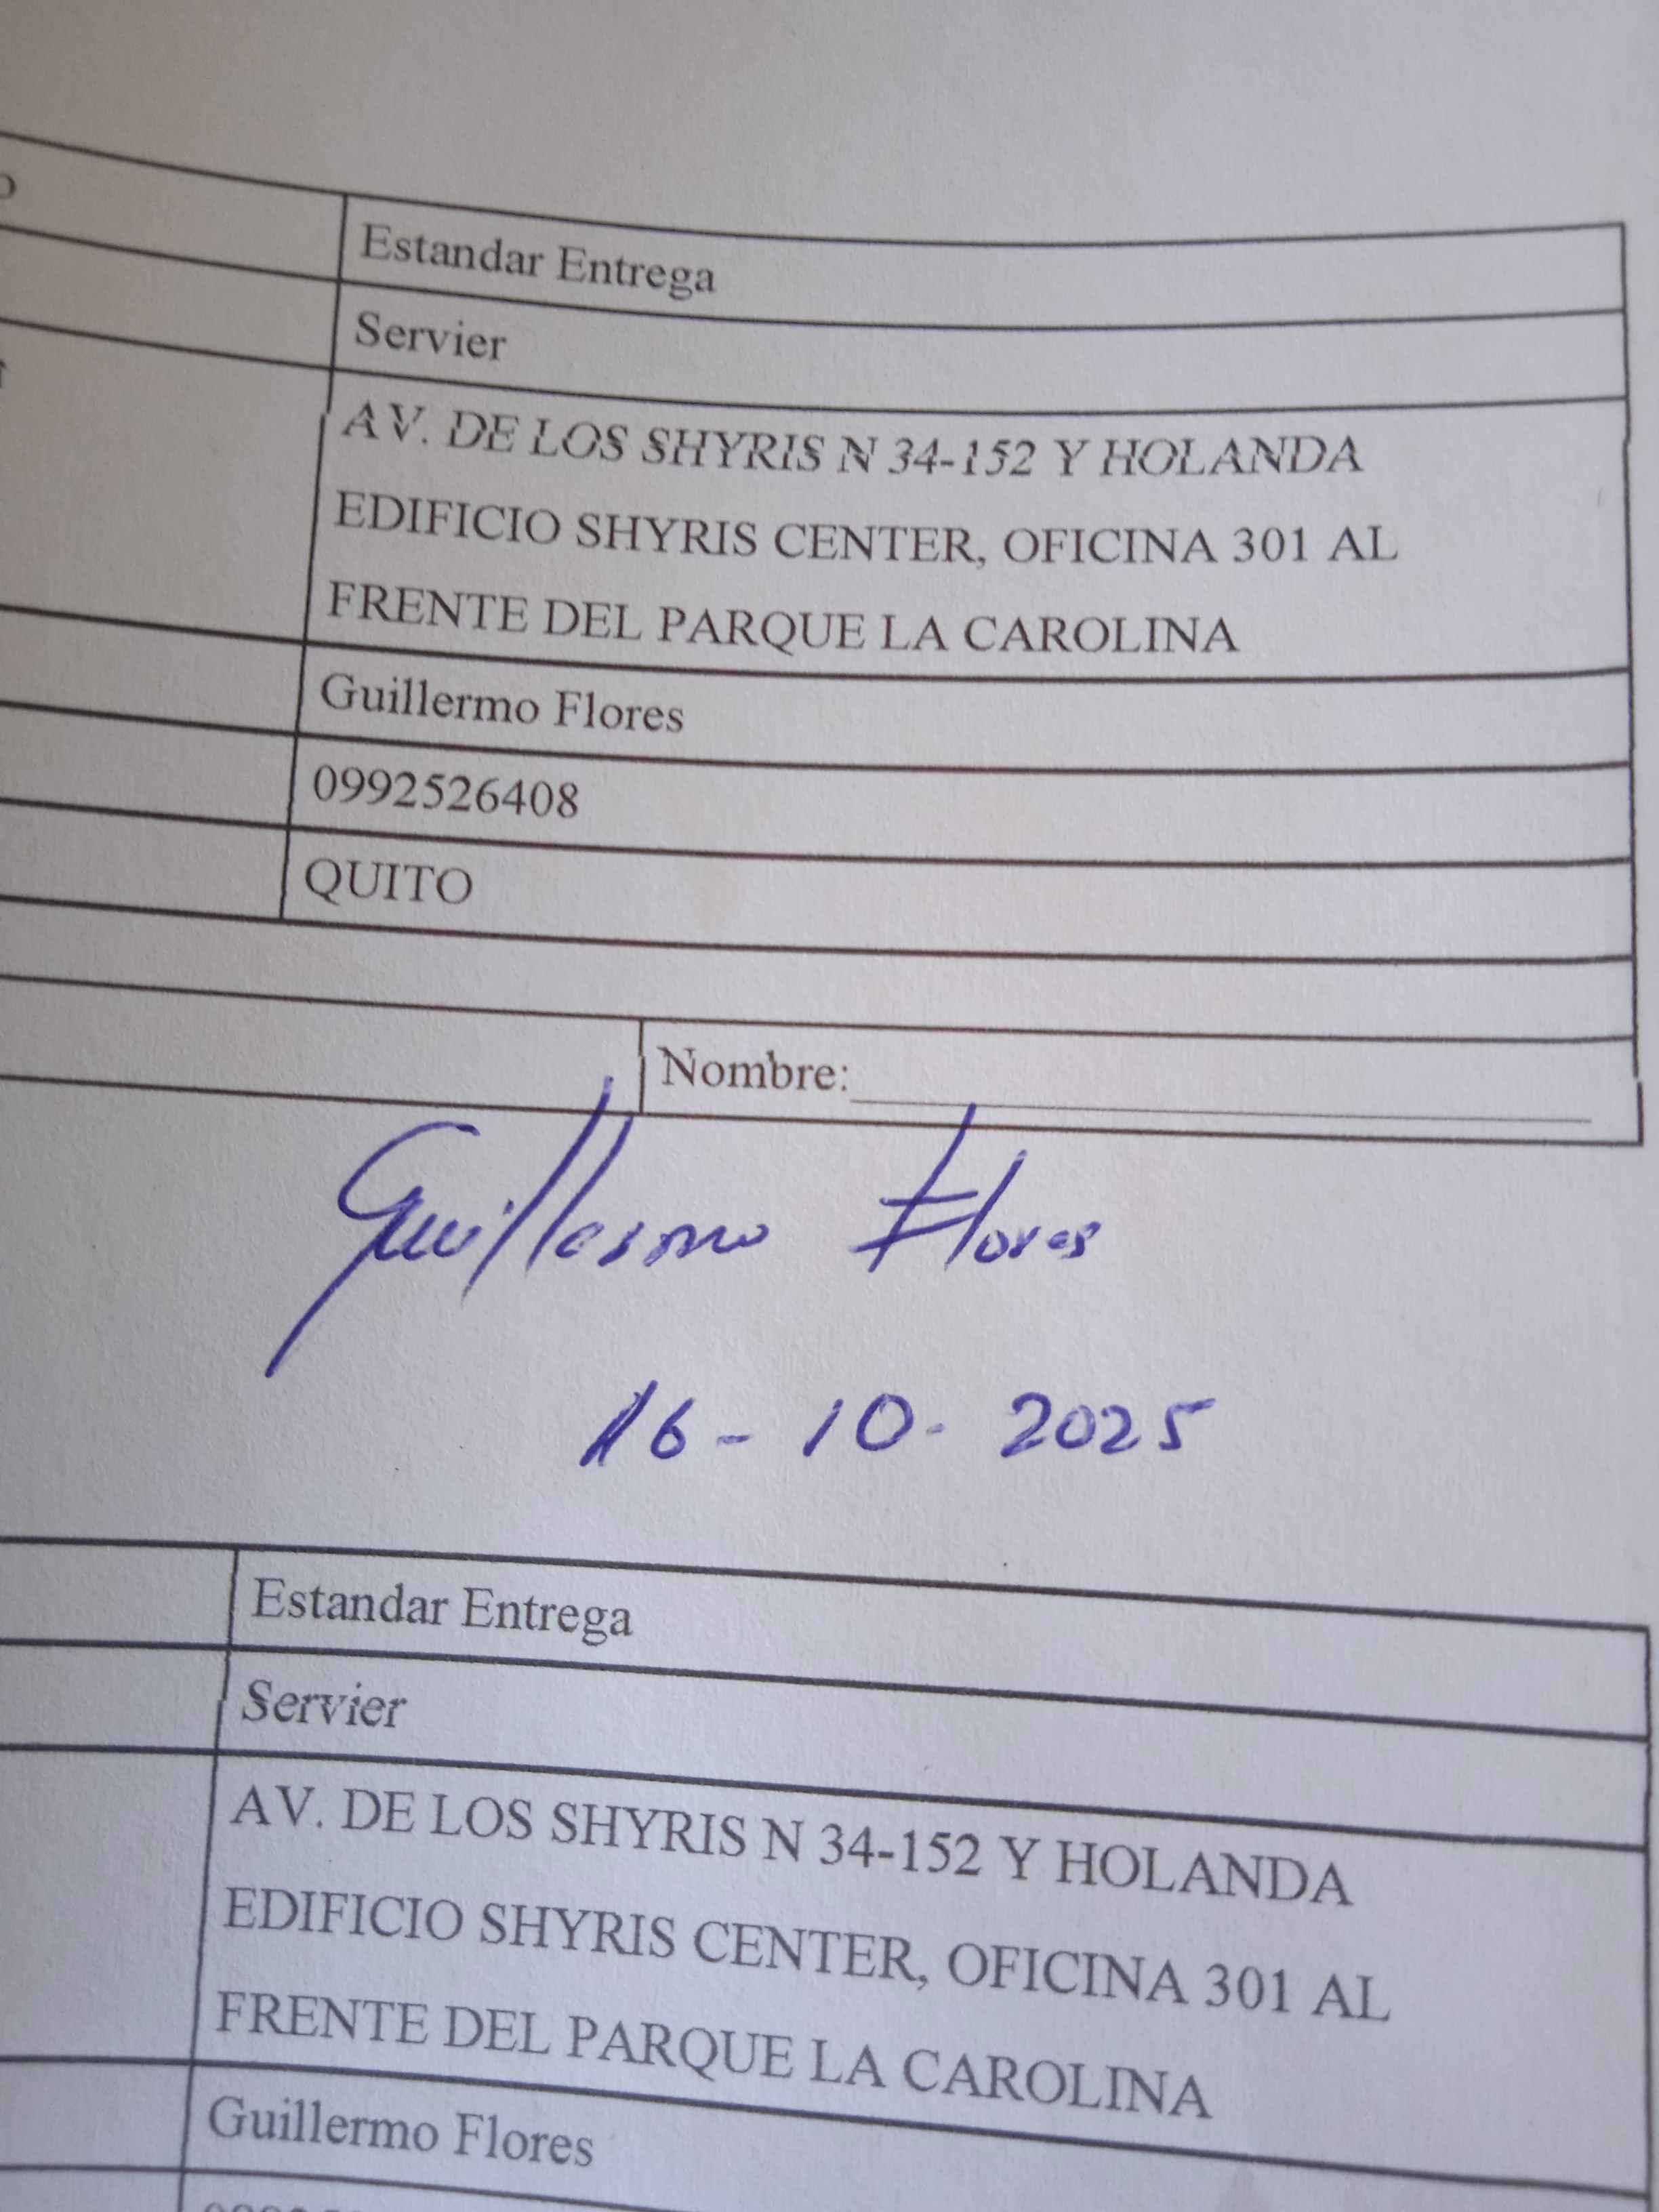 Estandar Entrega
Servier
AV. DE LOS SHYRIS N 34-152 Y HOLANDA
EDIFICIO SHYRIS CENTER, OFICINA 301 AL
FRENTE DEL PARQUE LA CAROLINA
Guillermo Flores
0992526408
QUITO
Nombre:
Guillermo Flores
16-10-2025
Estandar Entrega
Servier
AV. DE LOS SHYRIS N 34-152 Y HOLANDA
EDIFICIO SHYRIS CENTER, OFICINA 301 AL
FRENTE DEL PARQUE LA CAROLINA
Guillermo Flores